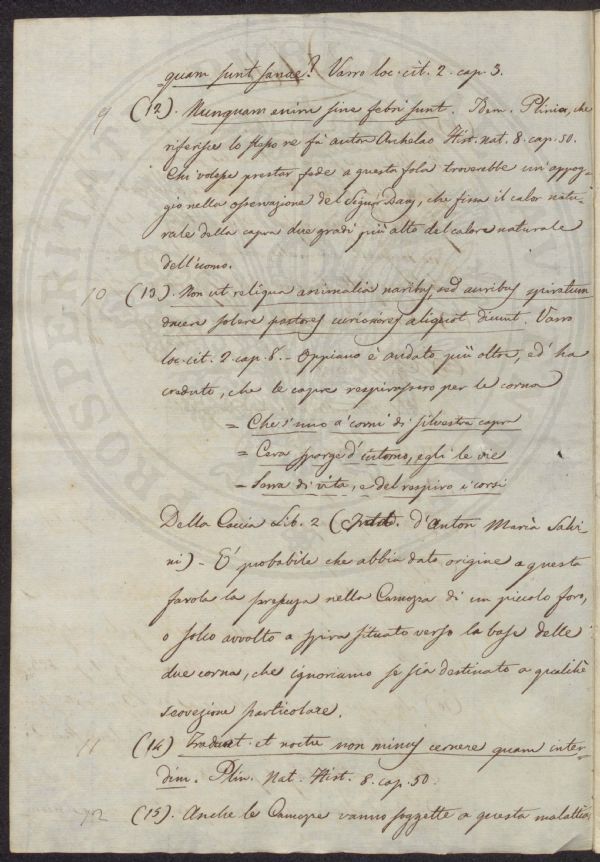 quam sunt sanae? Varro loc. cit. 2. cap. 3.
9 (12). Nunquam enim sine febri sunt. Varro Idem. Plinio, che
riferisce lo stesso re fà autor Archelao Hist. nat. 8. cap. 50.
Chi volesse prestar fede a questa fola troverebbe un'appog-
gio nella osservazione del Signor Davy, che fissa il calor natu-
rale della capra due gradi più alto del calore naturale
dell'uomo.
10 (13). Non ut reliqua animalia naribus, sed auribus spiritum
ducere solere pastores curiosiores aliquot dicunt. Varro
loc. cit. 2. cap. 8. - Oppiano è andato più oltre, ed ha
creduto, che le capre respirassero per le corna
= Che s'uno a' corni di silvestra capra
= Cera sparge d'intorno, egli le vie
= Serra di vita, e del respiro i corsi
Della Caccia Lib. 2 ( d'Anton Maria Salvi
ni) - E' probabile che abbia dato origine a questa
favola la presenza nella Camozza di un piccolo foro,
o solco avvolto a spira situato verso la base delle
due corna, che ignoriamo se sia destinato a qualche
secrezione particolare.
11 (14) Tradunt et noctu non minus cernere quam inter-
diu. Plin. Nat. Hist. 8. cap. 50.
12 (15). Anche le Camozze vanno soggette a questa malattia,